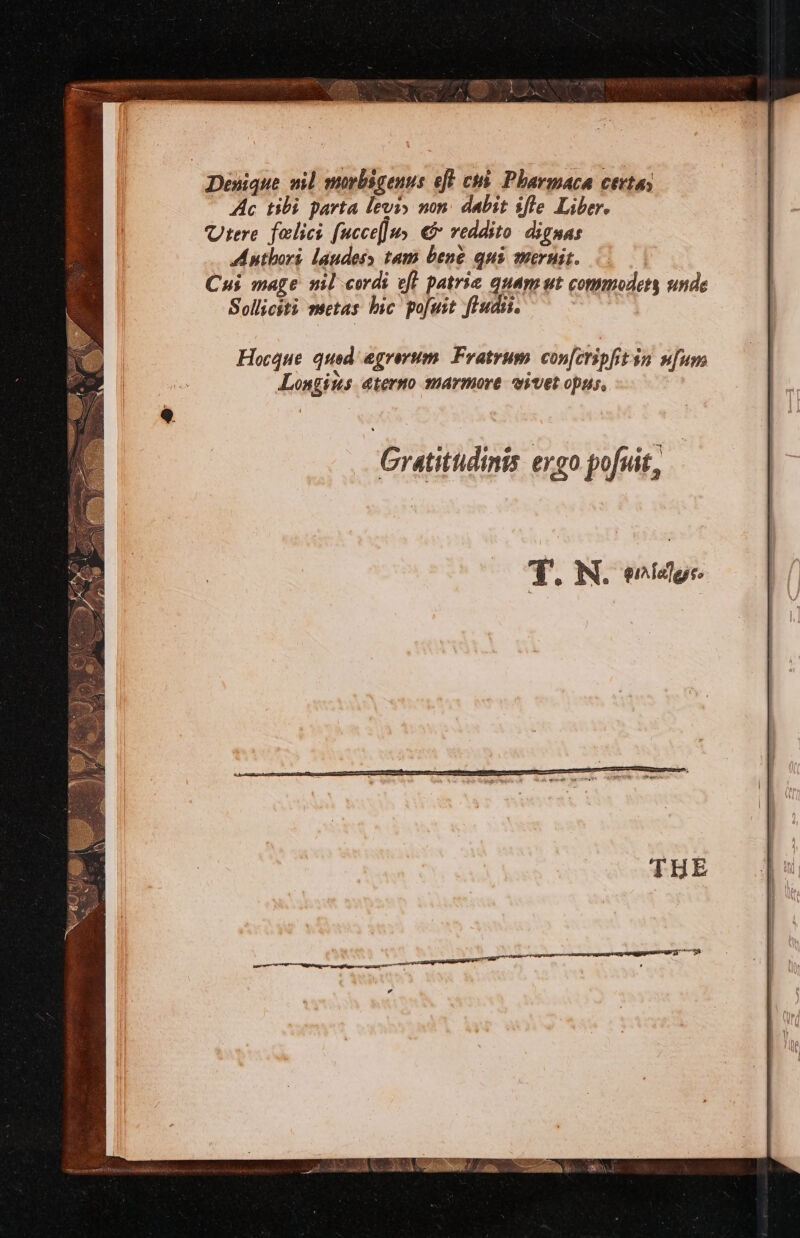 Denique nil morbigenus eſt cui Pharmaca certa,
Ac tibi parta levi, non dabit iſte Liber.
Utere fœlici ſucceſſu, & reddito dignas
Authori laudes, tam benè qui meruit.
Cui mage nil cordi eſt patriæ quam ut commodet; unde
Solliciti metas hic poſuit ſtudii.
Hocque quod ægrorum Fratrum conſcripſit in uſum
Longius æterno marmore vivet opus,
Gratitudinis ergo poſuit,
T. N.
THE